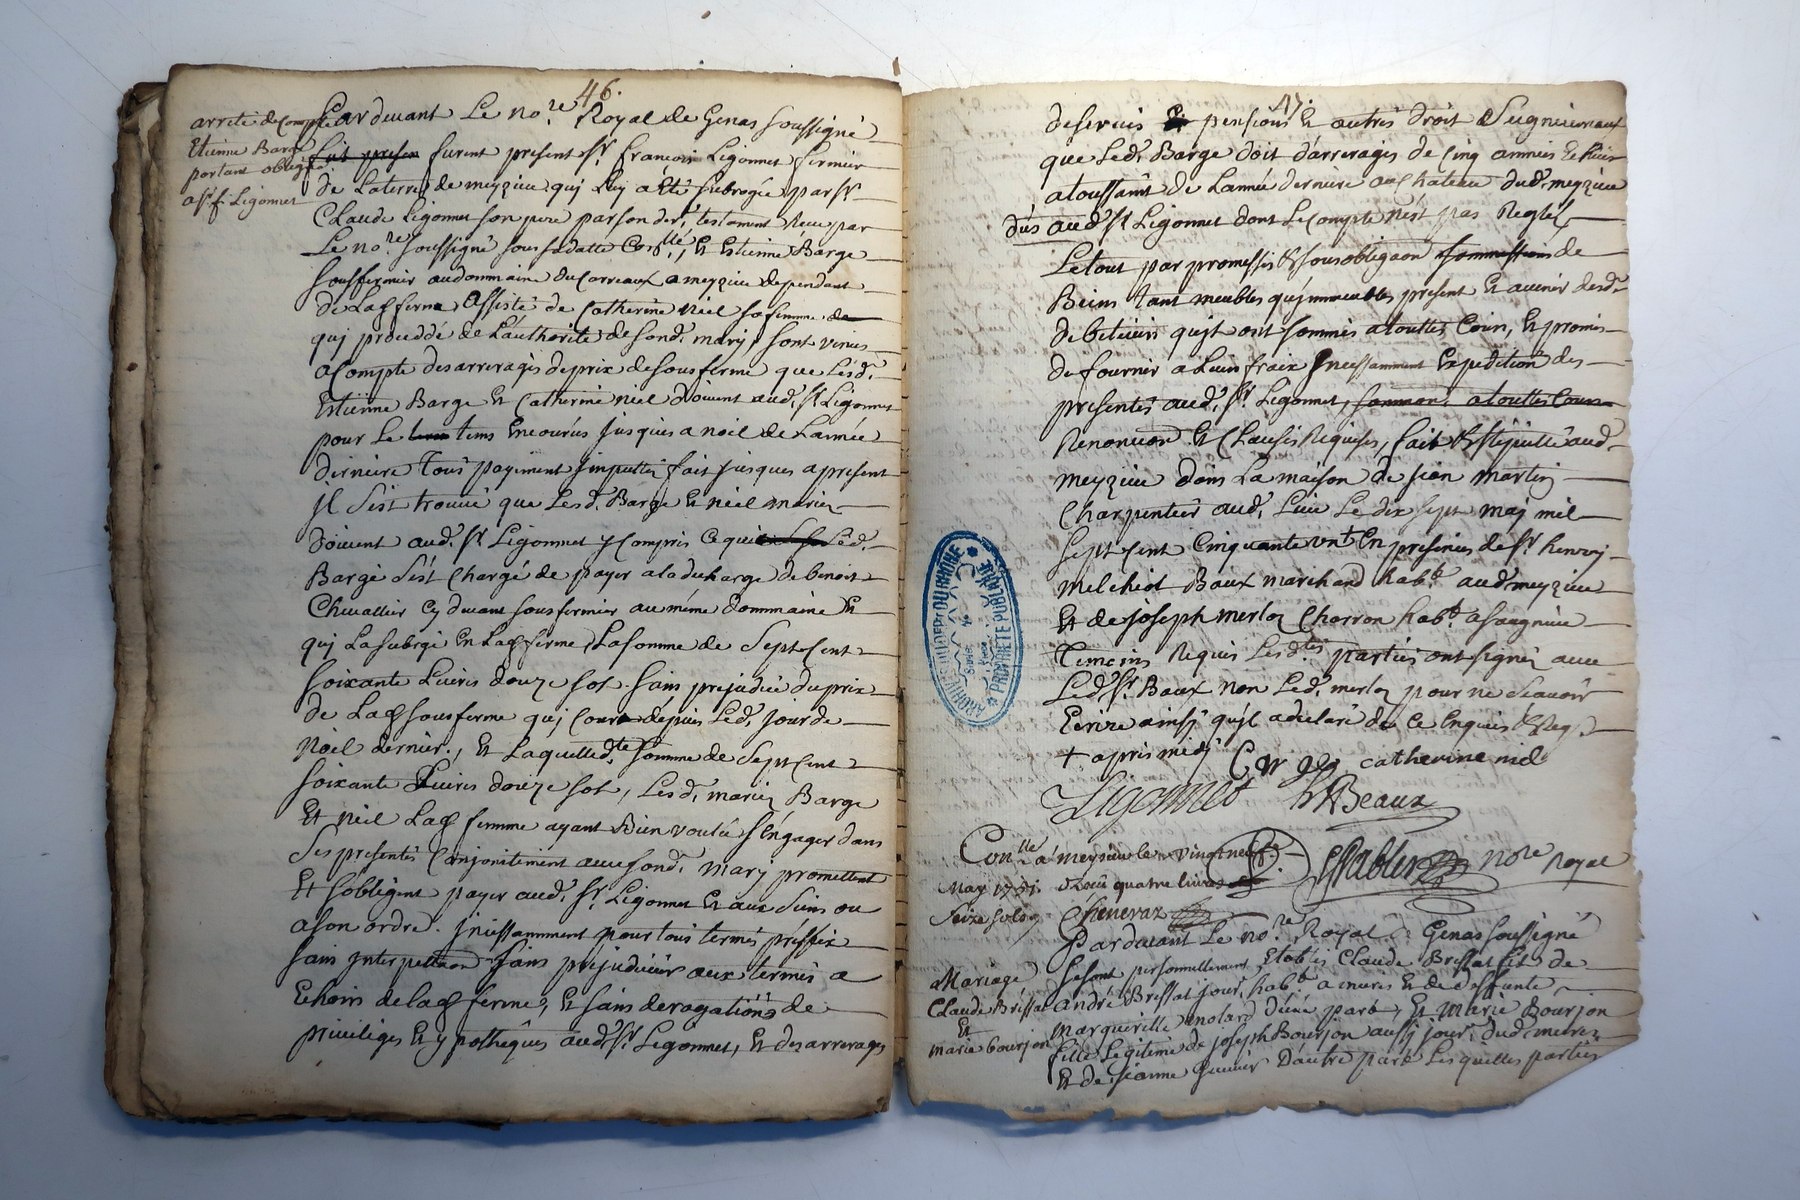 46.
arrete de Compte
Etienne Barge
portant oblig.
a Sr. f. Ligonnet
Pardevant Le no.re Royal de Genas soussigné
fait presen furent present Sr. francois Ligonnet fermier
de Laterre de meyzieu quj Luy a été subrogée par Sr.
Claude Ligonnet son pere par son der.r testament Receu par
Le no.re soussigné sous sadatte Con.llé, Et Estienne Barge
sousfermier audommaine du Correaux a meyzieu dependant
de Lad. ferme assisté de Catherine niel sa femme de
quj procedde de Lauthorité de sond. marj, sont venus
a Compte des arreragés de prix de sousferme que Lesd.
Estienne Barge Et Catherine niel doivent aud. Sr. Ligonnet
pour Le tems Encourus jusques a noil de Lannée
derniere Tous payement jmputtés fait jusques a present
jl s'est trouvé que Lesd. Barge Et niel mariez
doivent aud. Sr. Ligonnet y Compris Ce que Led.
Barge s'est Chargé de payer a la ducharge de benoit
Chevallier Cy devant sousfermier au même dommaine Et
quj La subrogé En Lad. ferme, La somme de Sept Cent
soixante Livres douze sol. sans prejudice du prix
de Lad. sousferme quj Coura depuis Led. jour de
Noil dernier, Et Laquelled.te somme de Sept Cent
soixante Livres douze sol, Lesd. mariez Barge
Et niel Lad. femme ayant Bien voulu s'Engager dans
Ses presentes Conjonitement avec sond. mary promettent
Et sobligent payer aud. Sr. Ligonnet Et aux siens ou
a son ordre. jncessamment pour tous termes preffix
sans jnterpellaon sans prejudicier aux termes a
Echoirs de lad. ferme, Et sans deragations de
privileges Et ypothêques aud. Sr. Ligonnet, Et des arrerages
47.
deservis Et pensions Et autres droit Seigneuriaux
que Led. Barge doit d'arrerages de Cinq années Echues
a toussaint de Lannée derniere au Chateau dud. meyzieu
dus aud. Sr. Ligonnet dont Le Compte n'est pas Reglés
Le tout par promesses & sous obligaon soummissions de
Beins tant meubles qu'jmmeubles present Et avenir desd.
debiteurs qujt ont sommis a touttes Cours, Et promis
de fournir a Leurs fraix jncessamment Expedition des
presentes aud. Sr. Ligonnet, sommon. a touttes Cours
Renonciaon Et Clauses Requises, fait & stipullé aud.
meyzieu dans La maison de jean martin
Charpentier aud. Lieu Le dix sept maj mil
sept Cent Cinquante un Et En presences de Sr. henry
melchiol Baux marchand hab.t aud. meyzieu
Et de joseph merloz Charron hab.t a saugnieu
Temoins Requis Lesd.tes parties ont signéz avec
Led. Sr. Baux non Led. merloz pour ne sçavoir
Ecrire ainsj qu'jl a declaré de Ce Enquis & Req.
+ apres midj
catherine niel
Ligonnet
hBeaux
Con.lle a meysieu le vingt neuf
May 1751. Recu quatre livres
Seize sols
Cheneraz
no.re Royal
Mariage
Claude Brissat
Et
marie bourjon
Pardevant Le no.re Royal de Genas soussigné
se sont personnellement Etablis Claude Brissat fils de
André Brissat jour. hab.t a mures Et de deffunte
Marguerille molard d'une part, Et Marie Bourjon
fille Legiteme de joseph Bourjon aussy jour. dud. mures
Et de jeanne D'autre part Lesquelles parties
ARCHIVES DU DEPT DU RHONE
PROPRIETE PUBLIQUE